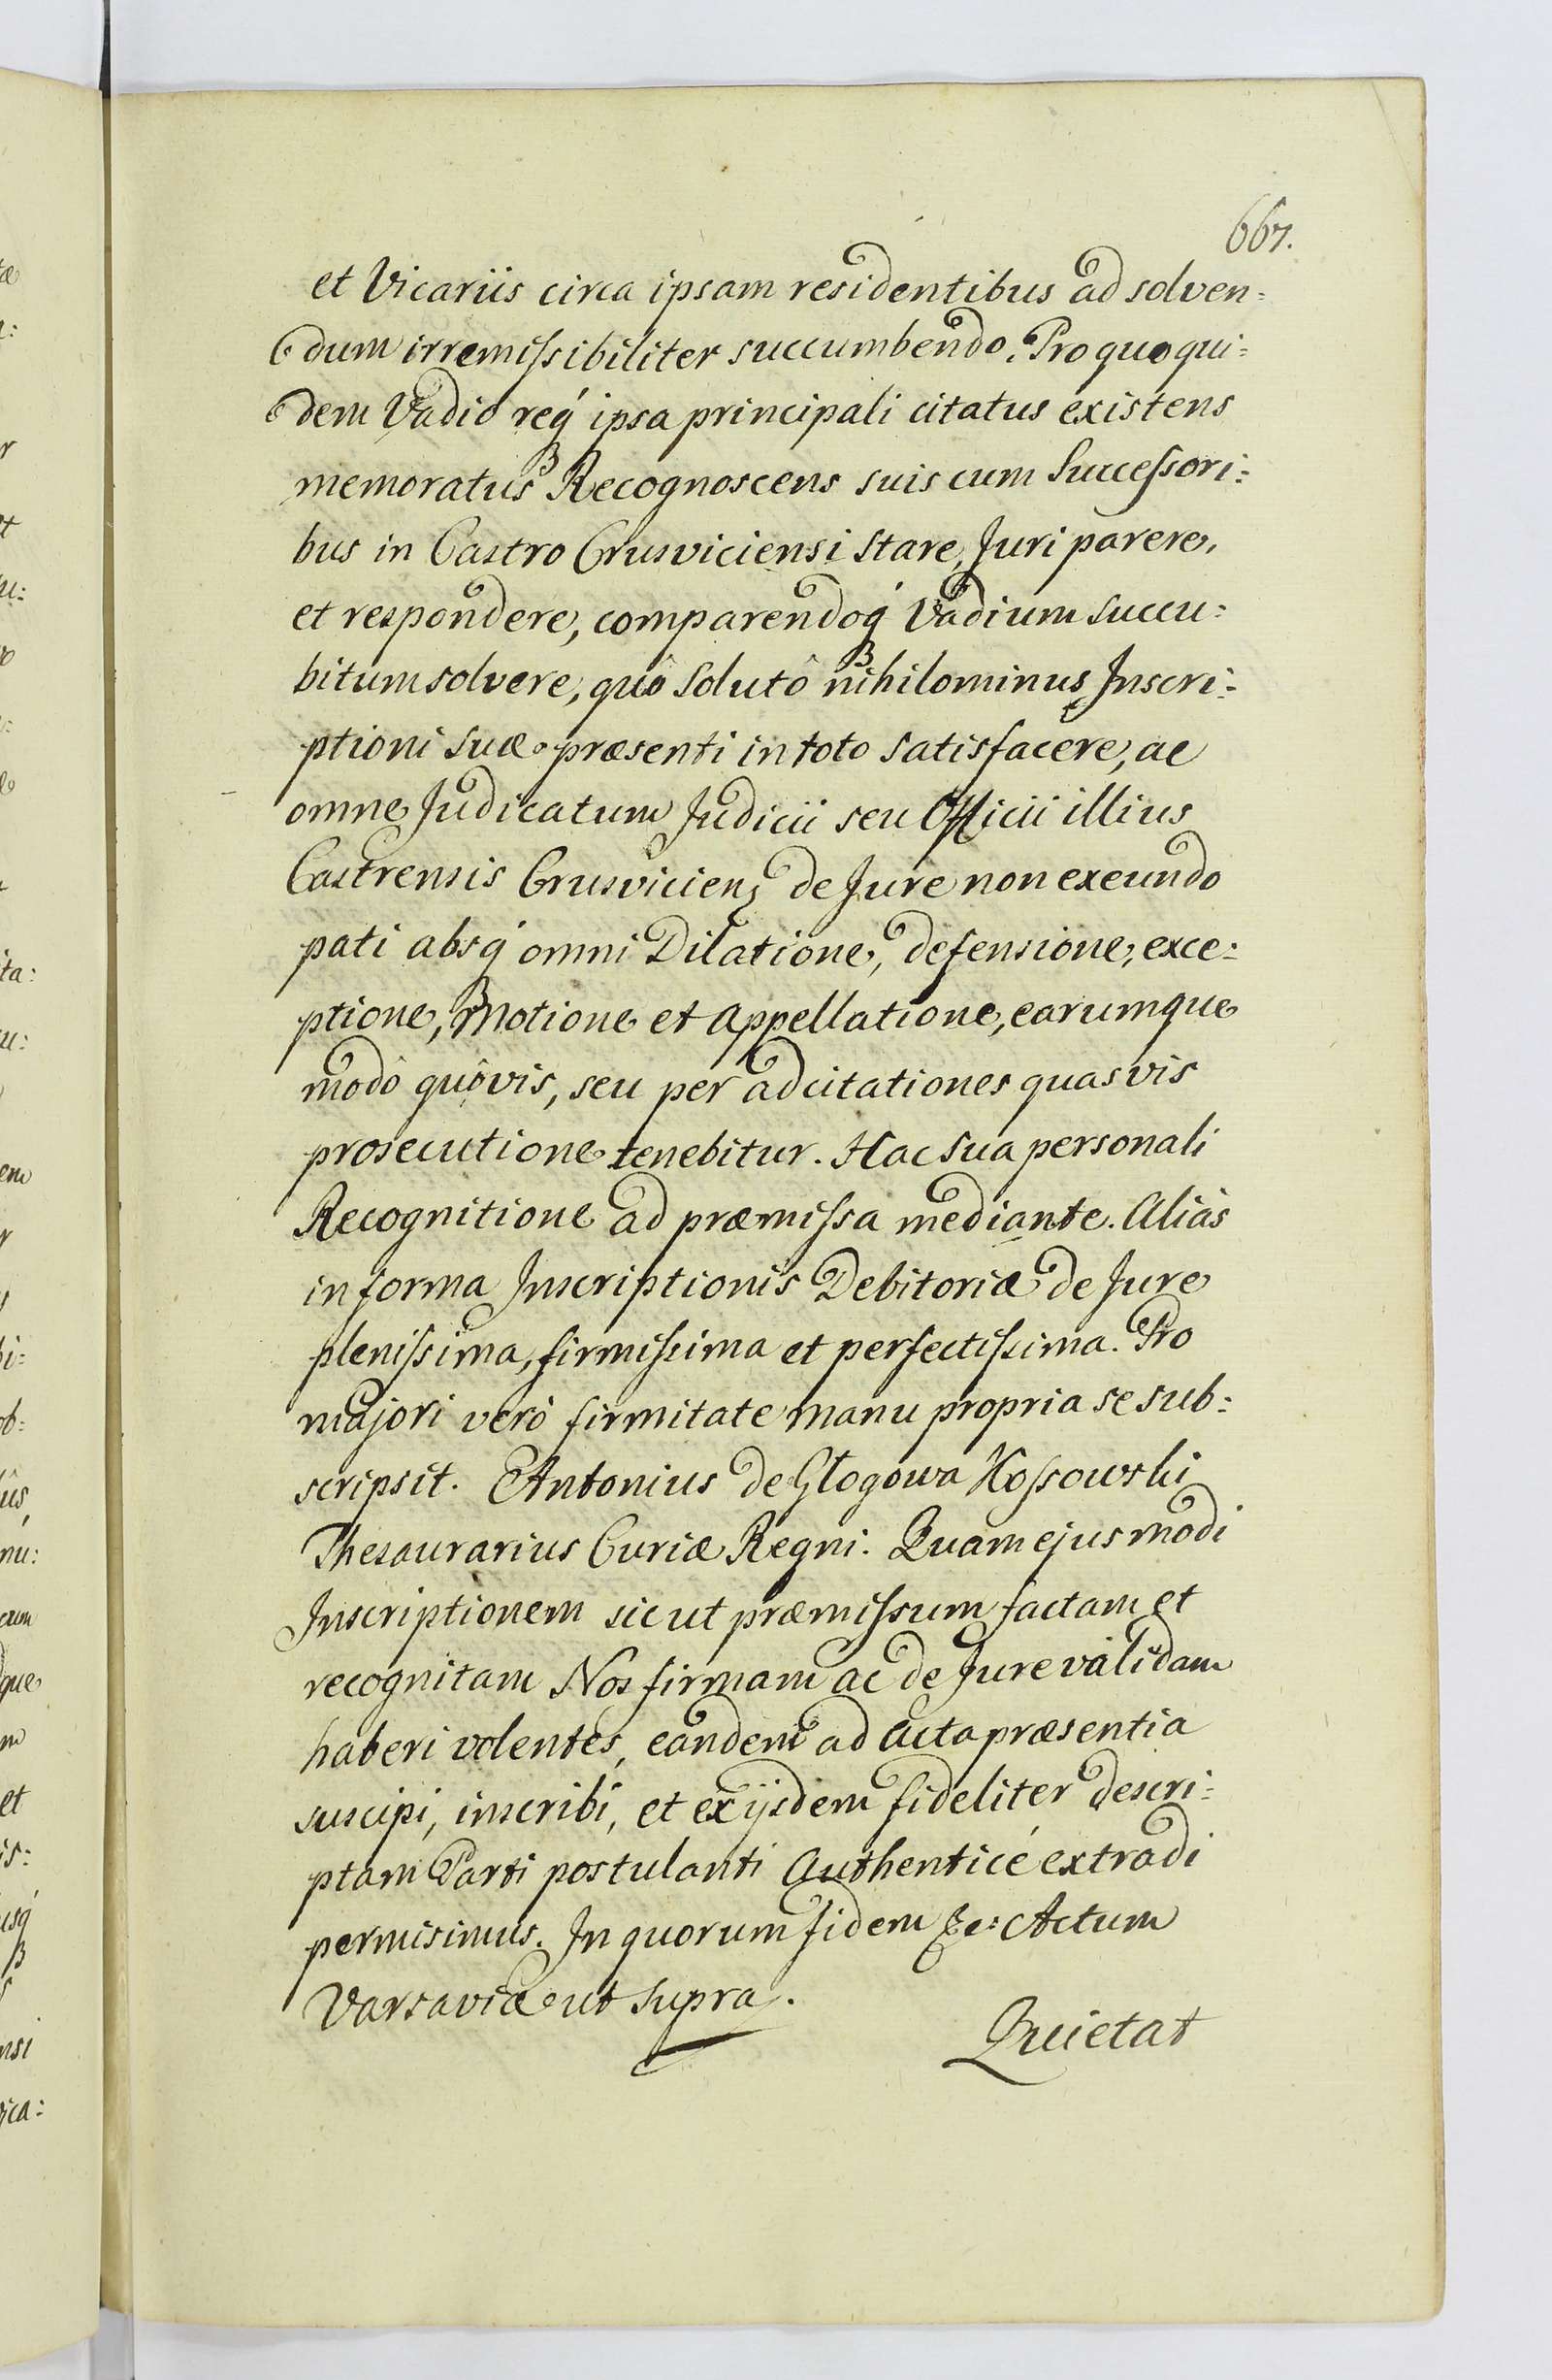 667.
et Vicariis circa ipsam residentibus ad solven=
dum irremissibiliter succumbendo. Pro quo qui=
dem Vadio req́ ipsa principali citatus existens
memoratus Recognoscens suis cum Successori=
bus in Castro Crusviciensi stare, Juri parere,
et respondere, comparendoq́ Vadium succu=
bitum solvere, quô solutô nihilominus Inscri=
ptioni suæ præsenti in toto satisfacere, ac
omne Judicatum Judicii seu Officii illius
Castrensis Crusvicienȝ de Jure non exeundo
pati absq́ omni Dilatione, defensione, exce=
ptione, Motione et Appellatione, earumque
modô quôvis, seu per adcitationes quasvis
prosecutione tenebitur. Hac sua personali
Recognitione ad præmissa mediante. Aliàs
in forma Inscriptionis Debitoriæ de Jure
plenissima, firmissima et perfectissima. Pro
majori verò firmitate manu propria se sub=
scripsit. Antonius de Głogowa Kossowski
Thesaurarius Curiæ Regni. Quam ejusmodi
Inscriptionem sicut præmissum factam et
recognitam Nos firmam ac de Jure validam
haberi volentes, eandem ad Acta præsentia
suscipi, inscribi, et ex ijsdem fideliter descri=
ptam Parti postulanti Authenticé extradi
permisimus. In quorum fidem &c: Actum
Varsaviæ ut supra.
Quietat